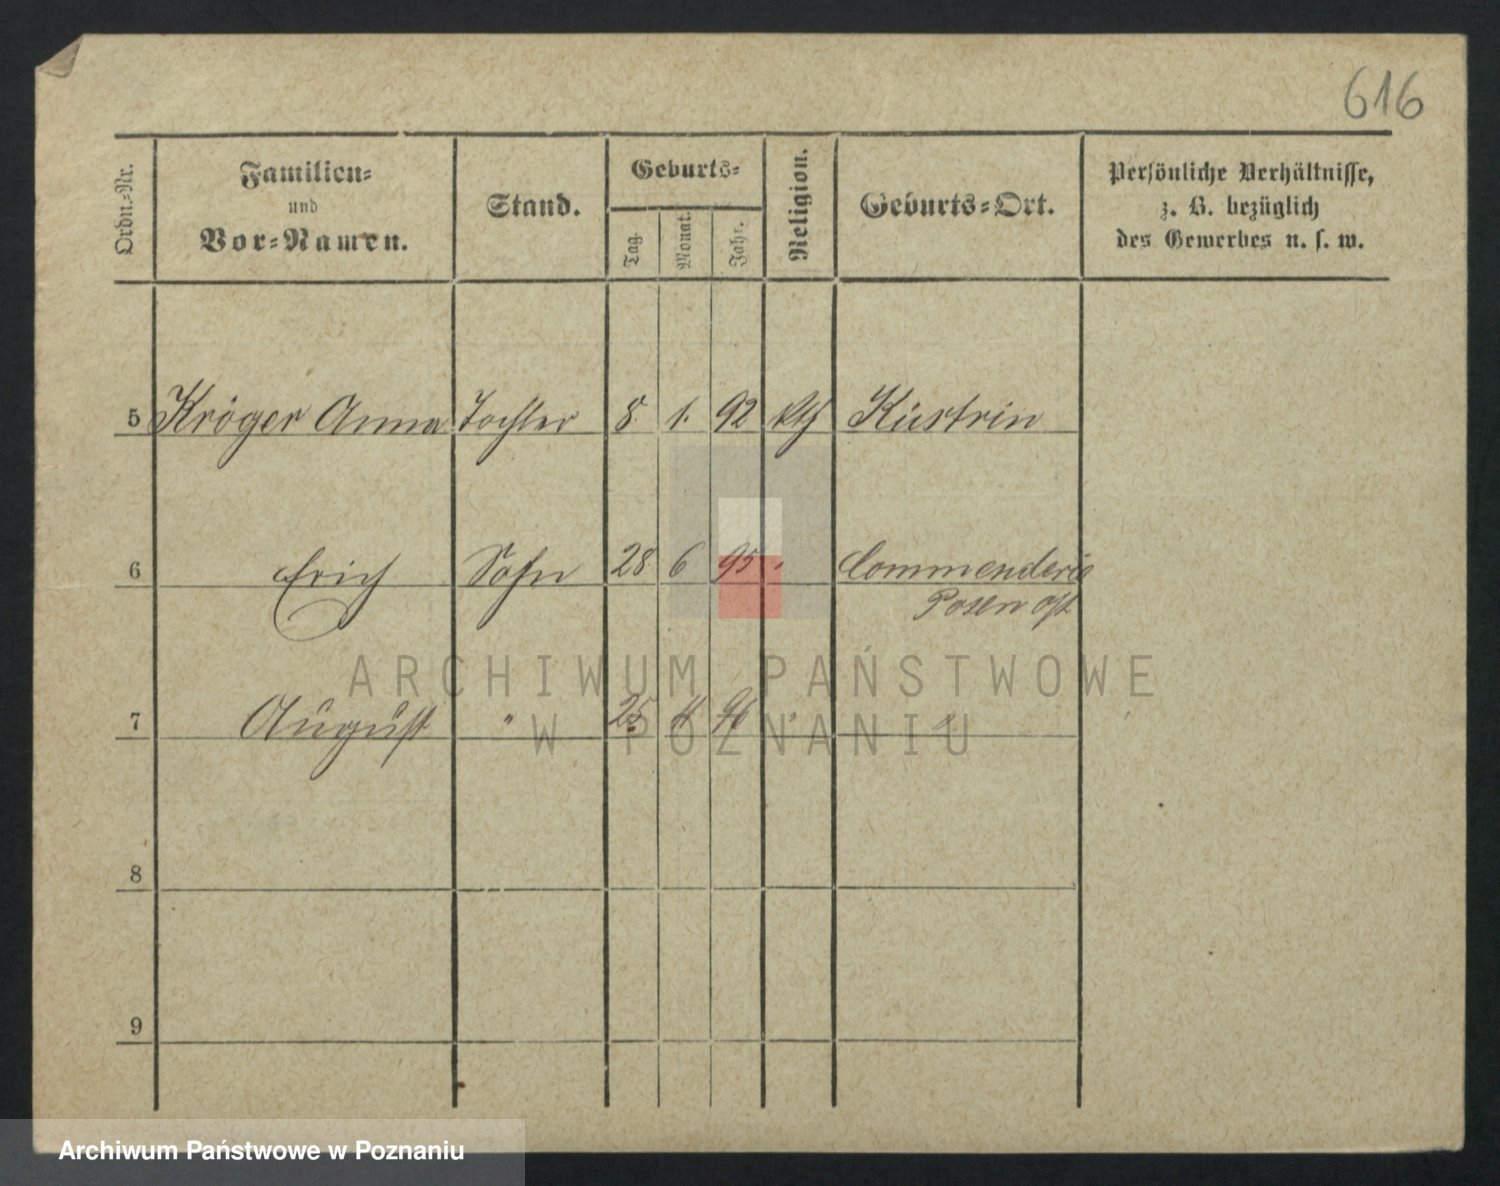 616
Ordn.-Nr.
Familien-
und
Vor-Namen.
Stand.
Geburts-
Tag.
Monat.
Jahr.
Religion.
Geburts-Ort.
Persönliche Verhältnisse,
z. B. bezüglich
des Gewerbes u. s. w.
5 Kröger Anna Tochter 8. 1. 92 kth Küstrin
6 Erich Sohn 28 6 95 " Commenderie
Posen Ost
7 August " 25 11 96 " "
8
9
ARCHIWUM PAŃSTWOWE
W POZNANIU
Archiwum Państwowe w Poznaniu